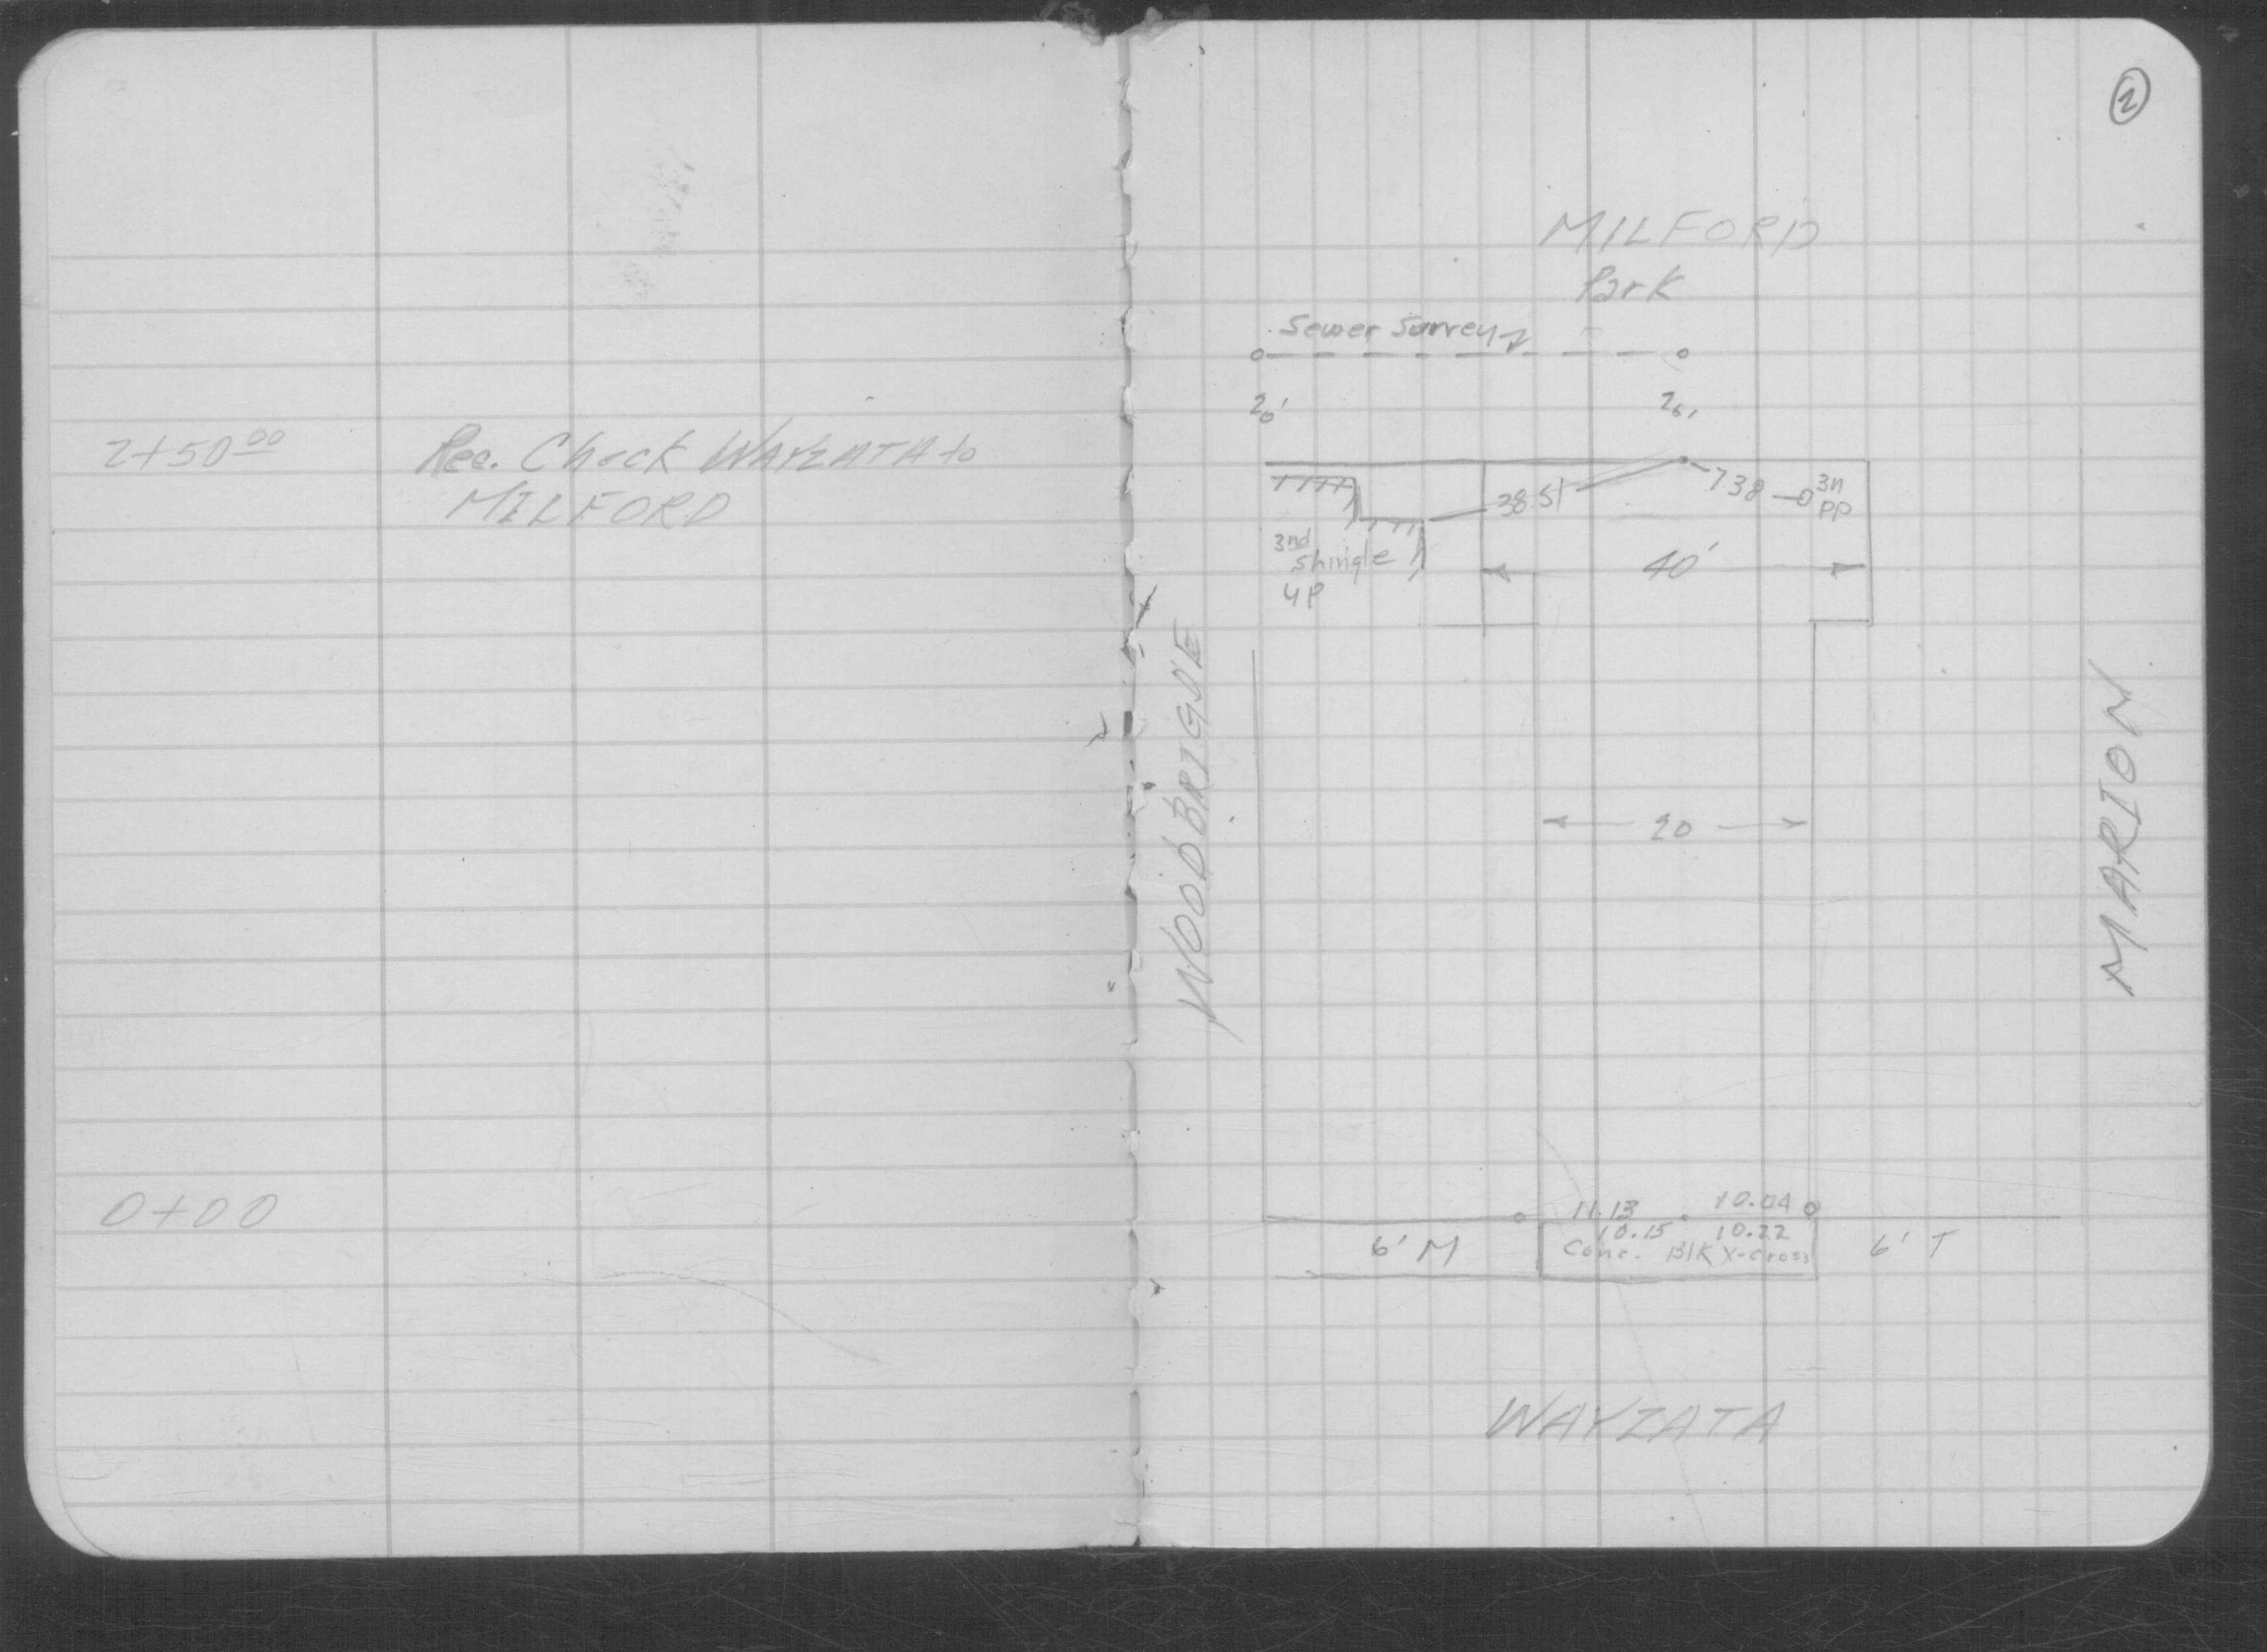 2+50 00
Rec. Check WAYZATA to
MILFORD
0+00
2
MILFORD
Park
Sewer Survey
20'
20'
38.51
7.38
3n
PP
3nd
Shingle
UP
40'
WOODBRIGDE
MARION
20
11.13
10.04
10.15
10.22
6' M
Conc. Blk X-cross
6' T
WAYZATA